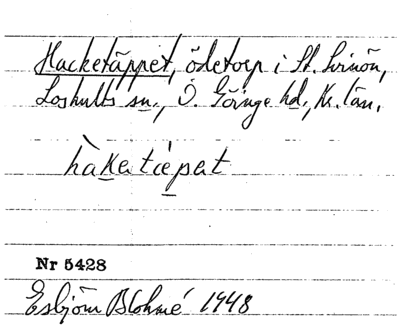 Hacketäppet, ödetorp i St. Svinön,
Loshults sn., Ö. Göinge hd., Kr. län.
hàkatæ̀pat
Nr 5428
Esbjörn Blohmé 1948